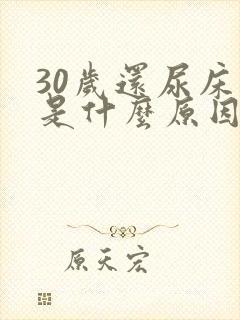 30歲還尿床
是什麼原因
原天宏